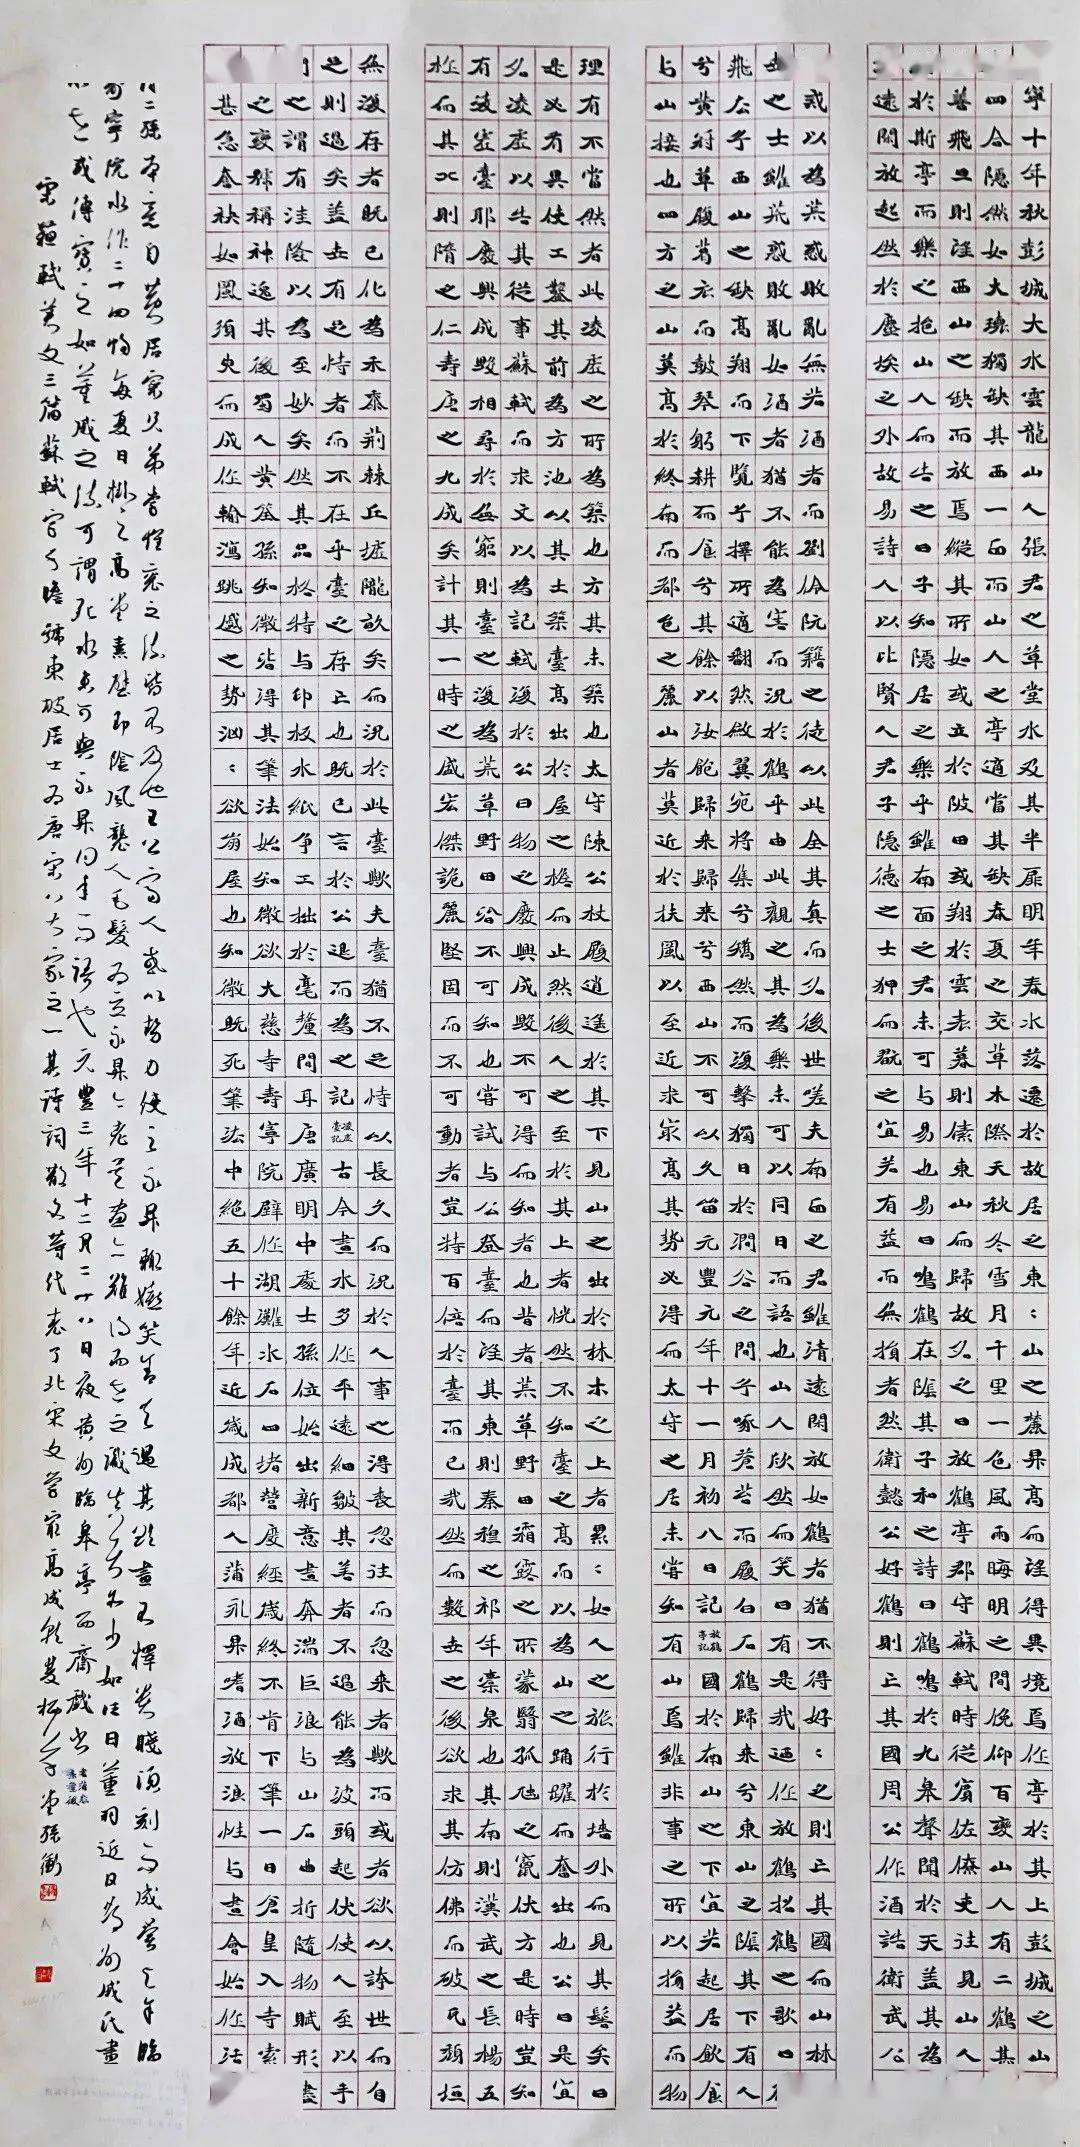 寧十年秋彭城大水雲龍山人張君之草堂水及其半扉明年春水落遷於故居之東：山之麓升高而望得異境焉作亭於其上彭城之山
四合隱然如大環獨缺其西一面而山人之亭適當其缺春夏之交草木際天秋冬雪月千里一色風雨晦明之間俛仰百變山人有二鶴其
善飛旦則望西山之缺而放焉縱其所如或立於陂田或翔於雲表暮則傃東山而歸故名之曰放鶴亭郡守蘇軾時從賓佐僚吏往見山人
於斯亭而樂之挹山人而告之曰子知隱居之樂乎雖南面之君未可与易也易曰鳴鶴在陰其子和之詩曰鶴鳴於九皋聲聞於天蓋其為
遠閑放超然於塵埃之外故易詩人以比賢人君子隱德之士狎而翫之宜若有益而無損者然衛懿公好鶴則亡其國周公作酒誥衛武公
或以為荒惑敗亂無若酒者而劉伶阮籍之徒以此全其真而名後世嗟夫南面之君雖清遠閑放如鶴者猶不得好：之則亡其國而山林
之士雖荒惑敗亂如酒者猶不能為害而況於鶴乎由此觀之其為樂未可以同日而語也山人欣然而笑曰有是哉迺作放鶴招鶴之歌曰
飛去兮西山之缺高翔而下覽兮擇所適翻然斂翼宛將集兮矯然而復擊獨日於澗谷之間兮啄蒼苔而履白石鶴歸來兮東山之陰其下有人
兮黃冠草履葛衣而鼓琴躬耕而食兮其餘以汝飽歸來歸來兮西山不可以久留元豐元年十一月初八日記放鶴亭記國於南山之下宜若起居飲食
与山接也四方之山莫高於終南而都邑之麗山者莫近於扶風以至近求最高其勢必得而太守之居未嘗知有山焉雖非事之所以損益而物
理有不當然者此凌虛之所為築也方其未築也太守陳公杖履逍遙於其下見山之出於林木之上者累：如人之旅行於墻外而見其髻矣曰
是必有異使工鑿其前為方池以其土築臺高出於屋之檐而止然後人之至於其上者恍然不知臺之高而以為山之踊躍奮出也公曰是宜
名凌虛以告其從事蘇軾而求文以為記軾復於公曰物之廢興成毀不可得而知也昔者荒草野田霜露之所蒙翳孤虺之竄伏方是時豈知
有凌虛臺耶廢興成毀相尋於無窮則臺之復為荒草野田皆不可知也嘗試与公登臺而望其東則秦穆之祈年橐泉也其南則漢武之長楊五
柞而其北則隋之仁壽唐之九成矣計其一時之盛宏傑詭麗堅固而不可動者豈特百倍於臺而已哉然而數世之後欲求其仿佛而破瓦頹垣
無復存者既已化為禾黍荊棘丘墟隴畝矣而況於此臺歟夫臺猶不足恃以長久而況於人事之得喪忽往而忽來者歟而或者欲以誇世而自
之則過矣蓋世有足恃者而不在乎臺之存亡也既已言於公退而為之記凌虛臺記古今畫水多作平遠細皺其善者不過能為波頭起伏使人至以手
之謂有洼隆以為至妙矣然其品格特与印板水紙爭工拙於毫釐間耳唐廣明中處士孫位始出新意畫奔湍巨浪与山石曲折隨物賦形畫
之變號稱神逸其後蜀人黃筌孫知微皆得其筆法始知微欲大慈寺壽寧院壁作湖灘水石四堵營度經歲終不肯下筆一日倉皇入寺索
甚急奮袂如風須臾而成作輸瀉跳蹙之勢洶：欲崩屋也知微既死筆法中絕五十餘年近歲成都人蒲永昇嗜酒放浪性与畫會始作活
二孫本意自黃居寀兄弟李懷袞之流皆不及也王公富人或以勢力使之永昇輒嬉笑舍去遇其欲畫不擇貴賤頃刻而成嘗与余臨
壽寧院水作二十四幅每夏日掛之高堂素壁即陰風襲人毛髮為立永昇今老矣畫亦難得而世之識真者亦少如往日董羽近日常州戚氏畫
水世或傳寶之如董戚之流可謂死水未可與永昇同年而語也元豐三年十二月二十八日夜黃州臨皋亭西齋戲書書蒲永昇畫後
宋蘇軾美文三篇蘇軾字子瞻號東坡居士為唐宋八大家之一其詩詞散文等代表了北宋文學最高成就